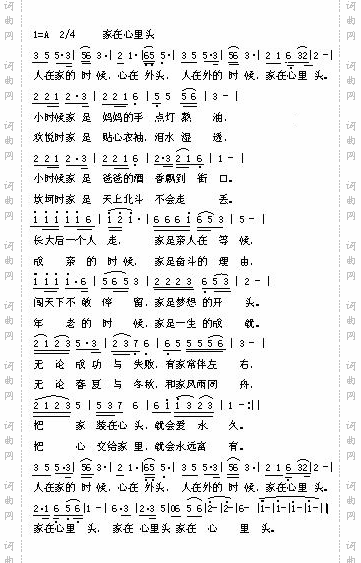 1=A 2/4 家在心里头
3 5 5·3 | 56 3· | 2 1· | 65 5· | 3 5 5·3 | 56 3· | 2 1 6 32 | 2 - |
人在家的 时 候, 心在 外头, 人在外的 时 候, 家在心里 头。
2 2 1 2·3 | 2 2 1 6 | 5 5 56 | 3 - |
小时候家 是 妈妈的手 点灯 熬 油,
欢悦时家 是 贴心衣袖, 泪水 湿 透,
2 2 1 2·3 | 2 2 1 6 | 2·3 2 1 6 | 1 - |
小时候家 是 爸爸的酒 香飘到 街 口。
坎坷时家 是 天上北斗 不会走 丢。
1 1 1 1 1 6 | 1 2 1· | 6 6 6 1 6 5 3 | 5 - |
长大后一个人 走, 家是亲人在 等 候,
成 亲 的 时 候, 家是奋斗的 理 由,
1 1 1·6 | 5 6 5 3 | 2 2 2 3 6 5 3 | 2 - |
闯天下不 敢 停 留, 家是梦想 的开 头。
年 老的 时 候, 家是一生 的成 就。
2 1 2 3 5·3 | 2 3 7 6 | 6 5 5 5 5 6 | 3 - |
无 论 成 功 与 失败, 有家常伴左 右,
无 论 春 夏 与 冬秋, 和家风雨同 舟,
2 1 2 3 5 | 5 3 7 6 | 6 1 1 3 2 3 | 1 - :||
把 家 装在心 头, 就会爱 永 久。
把 心 交给家 里, 就会永远富 有。
3 5 5·3 | 56 3· | 2 1· | 65 5· | 3 5 5·3 | 56 3· | 2 1 6 32 | 2 - |
人在家的 时 候, 心在 外头, 人在外的 时 候, 家在心里 头。
2·1 6 5 6 | 1 - | 6·3 | 2·3 5 | 0 6 5 6 | 2 - | 2 - | 6 - | 1 - | 1 - | 1 - | 1 - ||
家在心里 头, 家在 心里头 家在 心 里 头。
词曲网
词曲网
词曲网
词曲网
词曲网
词曲网
词曲网
词曲网
词曲网
词曲网